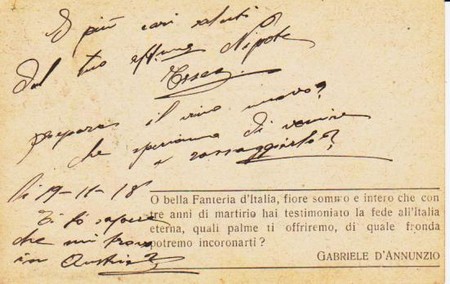 I più cari saluti
dal tuo eff.mo Nipote
prepara il vino nuovo?
che speriamo di venire
a rassaggiarlo?
Li 19-11-18
Ti fo sapere
che mi trovo
in Austria
O bella Fanteria d'Italia, fiore sommo e intero che con
tre anni di martirio hai testimoniato la fede all'Italia
eterna, quali palme ti offriremo, di quale fronda
potremo incoronarti ?
GABRIELE D'ANNUNZIO